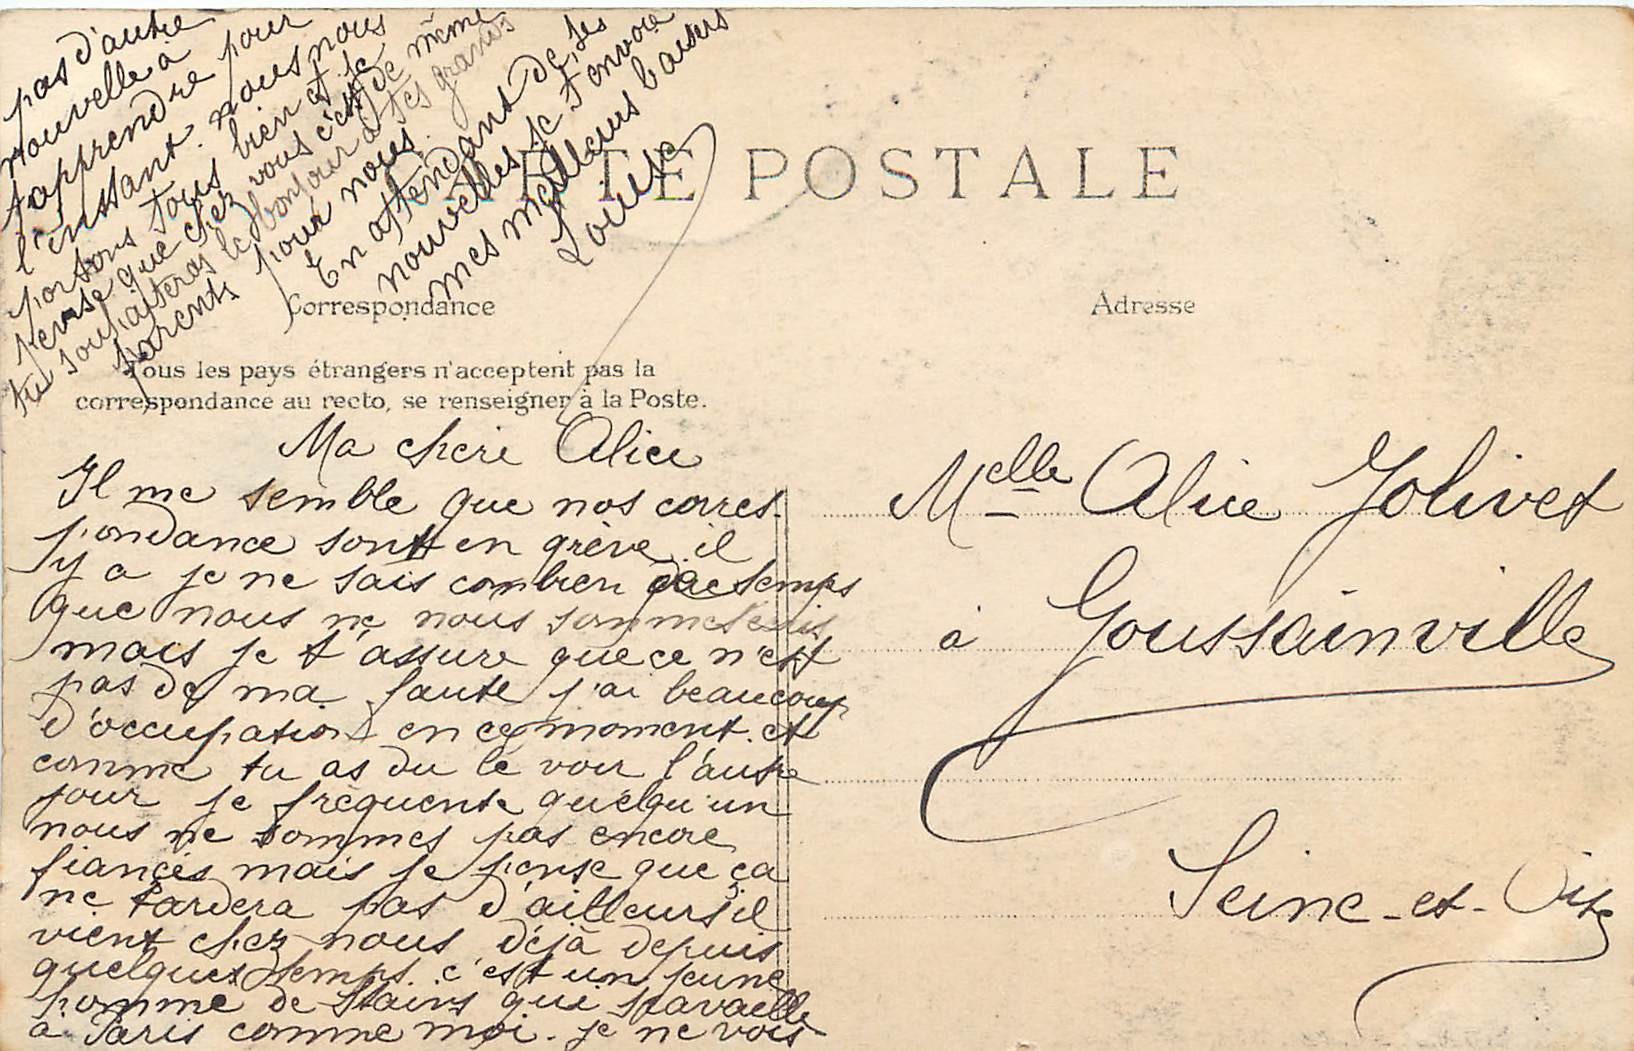 CARTE POSTALE
Correspondance
Adresse
Tous les pays étrangers n'acceptent pas la
correspondance au recto, se renseigner à la Poste.
Ma chere Alice
Il me semble que nos corres-
pondance sont en grève. il
y a je ne sais combien de temps
que nous ne nous sommes
mais je t'assure que ce n'est
pas de ma faute j'ai beaucoup
d'occupation en ce moment. et
comme tu as du le voir l'autre
jour je frequente quelqu'un
nous ne sommes pas encore
fiancés mais je pense que ça
ne tardera pas d'ailleurs il
vient chez nous déjà depuis
quelques temps. c'est un jeune
homme de Stains qui travaille
à Paris comme moi. je ne vois
pas d'autre
nouvelle à
t'apprendre pour
l'instant. nous nous
portons tous bien et je
pense que chez vous c'est de même
tu souhaiteras le bonjour à tes grands
parents pour nous.
En attendant de tes
nouvelles je t'envoie
mes meilleurs baisers
Louise
Melle Alice Jolivet
à Goussainville
Seine-et-Oise